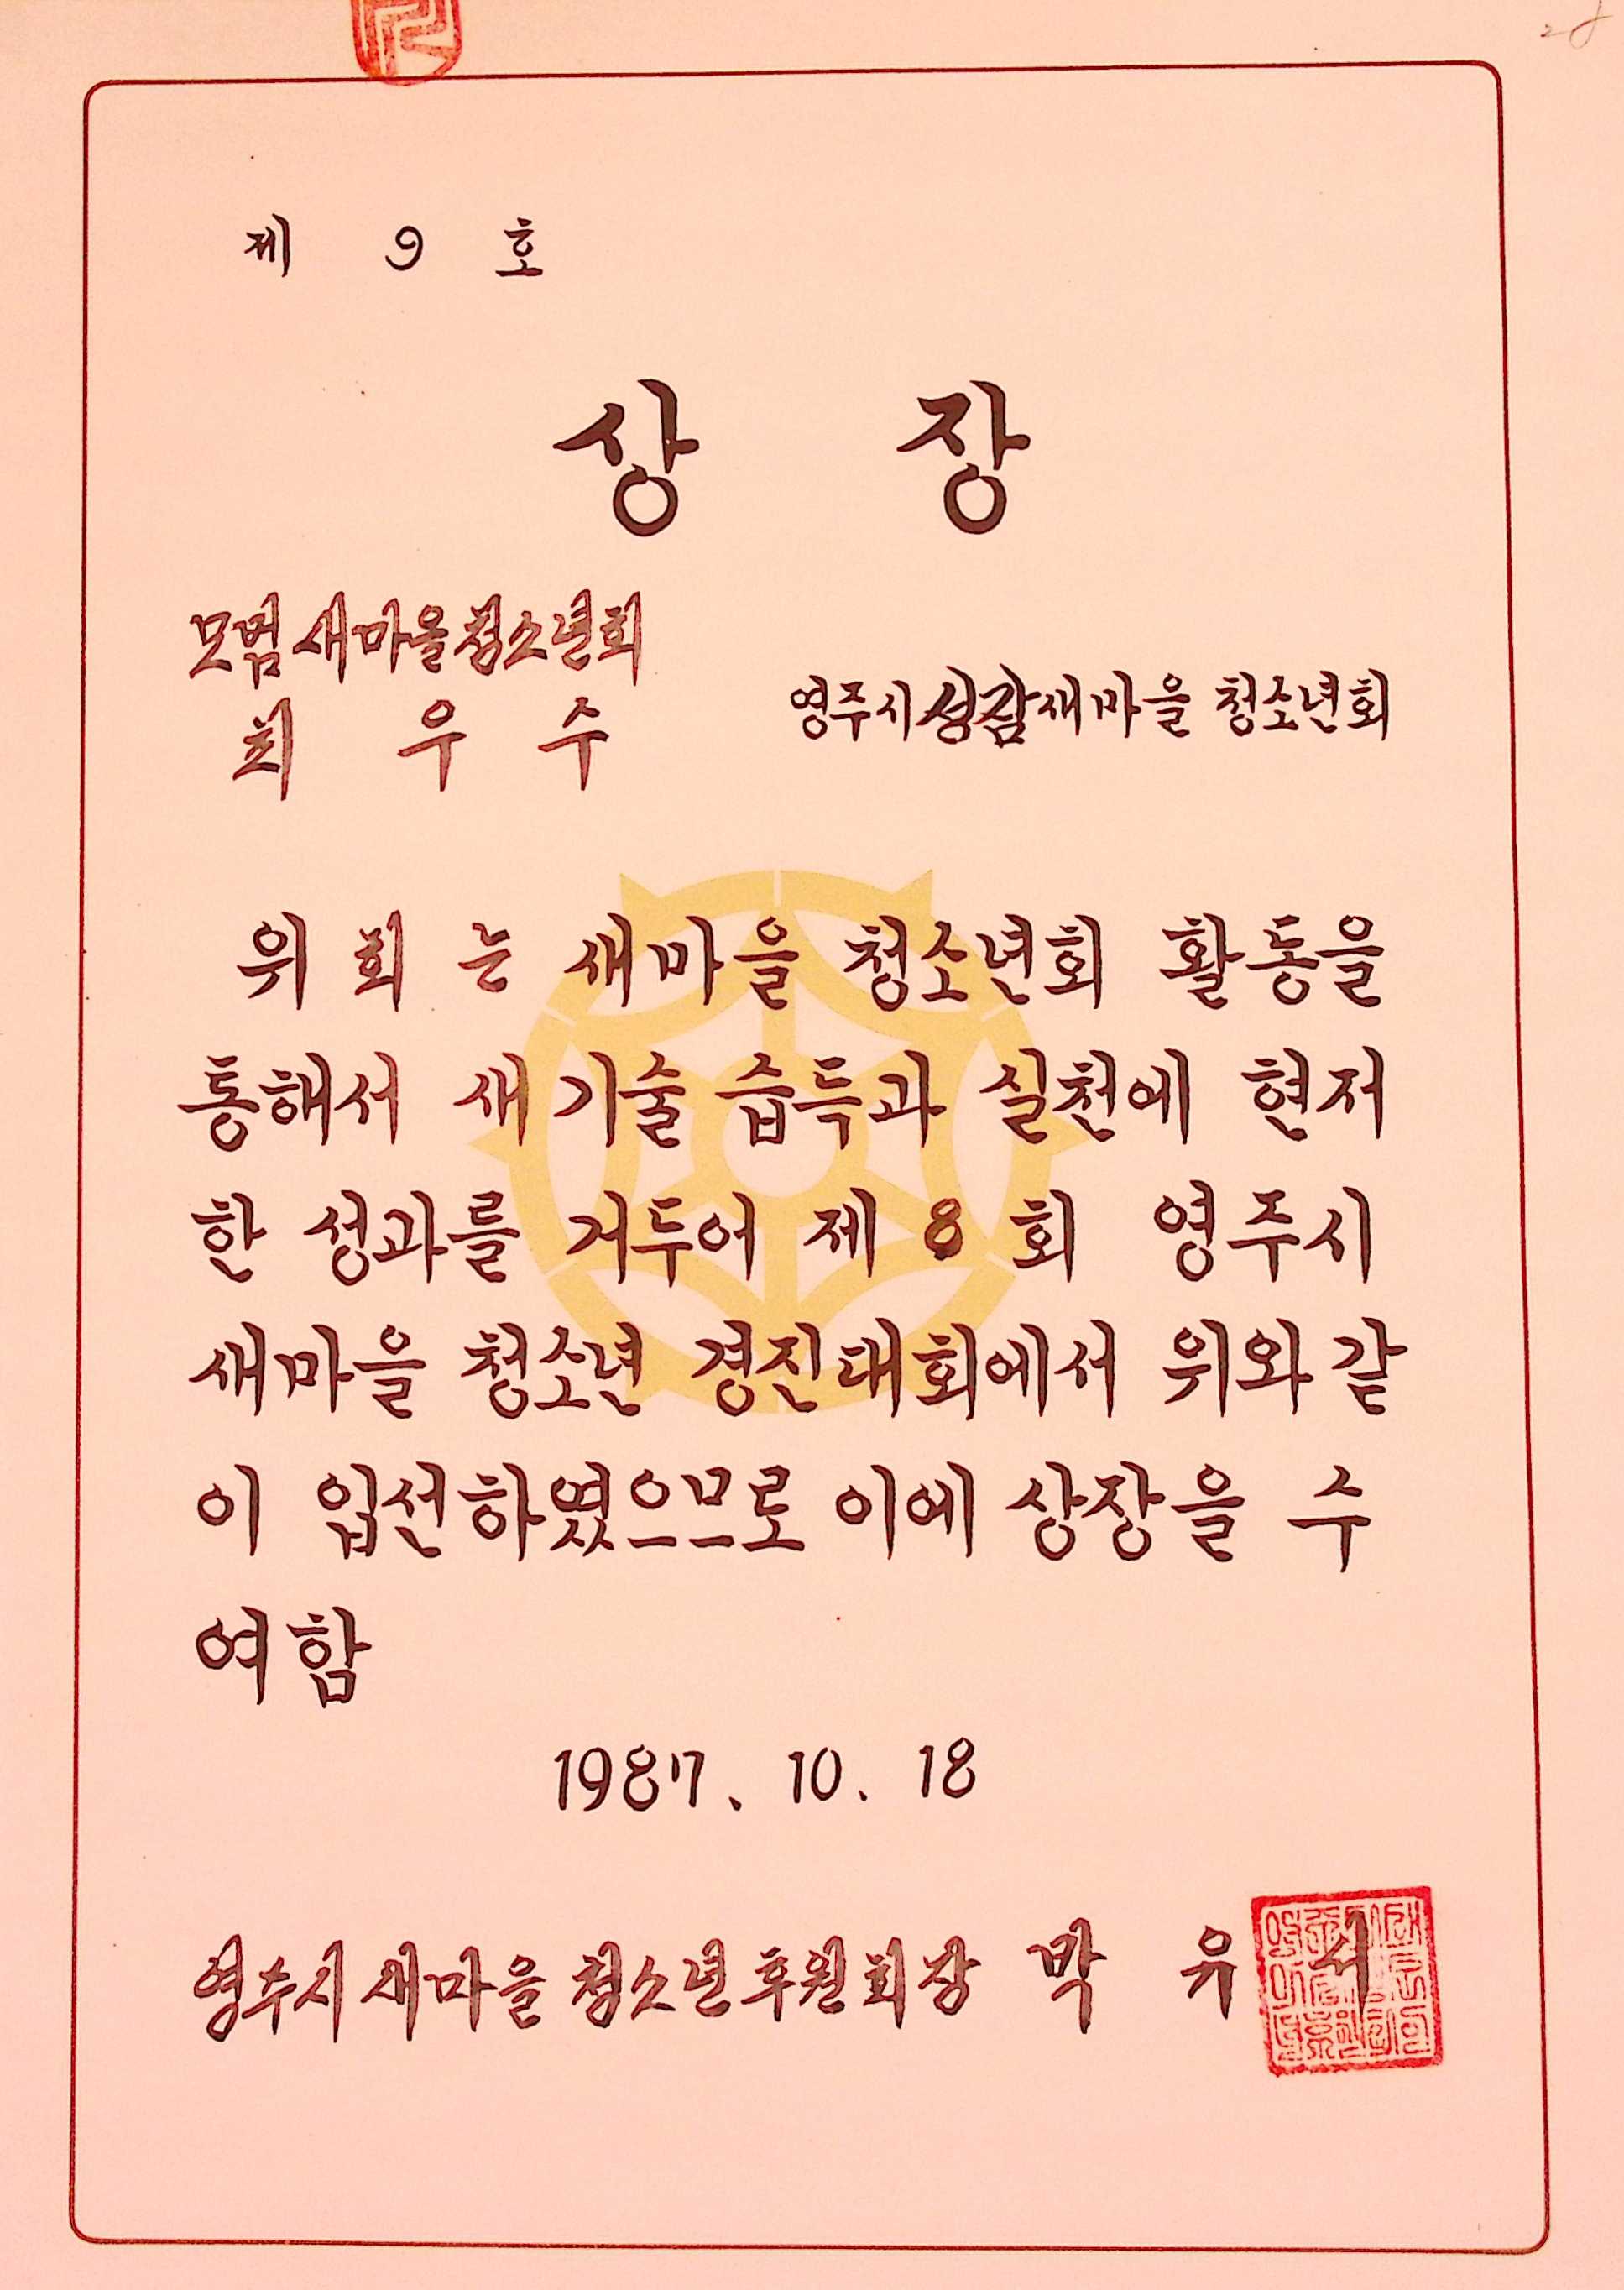 제 9 호
상 장
모범새마을청소년회
최 우 수
영주시성감새마을 청소년회
위 회 는 새마을 청소년회 활동을
통해서 새기술 습득과 실천에 현저
한 성과를 거두어 제 8 회 영주시
새마을 청소년 경진대회에서 위와 같
이 입선하였으므로 이에 상장을 수
여함
1987. 10. 18
영주시새마을청소년후원회장 박 유 서